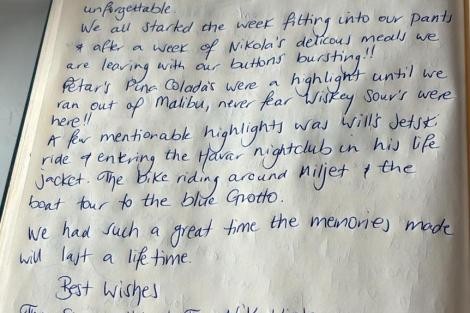 unforgettable.
We all started the week fitting into our pants
& after a week of Nikola's delicous meals we
are leaving with our buttons bursting!!
Petar's Pina Colada's were a highlight until we
ran out of Malibu, never fear Wiskey Sour's were
here!!
A few mentionable highlights was Will's Jetski
ride & entering the Havar nightclub in his life
jacket. The bike riding around niljet & the
boat tour to the blue Grotto.
We had such a great time the memories made
will last a lifetime.
Best Wishes
The